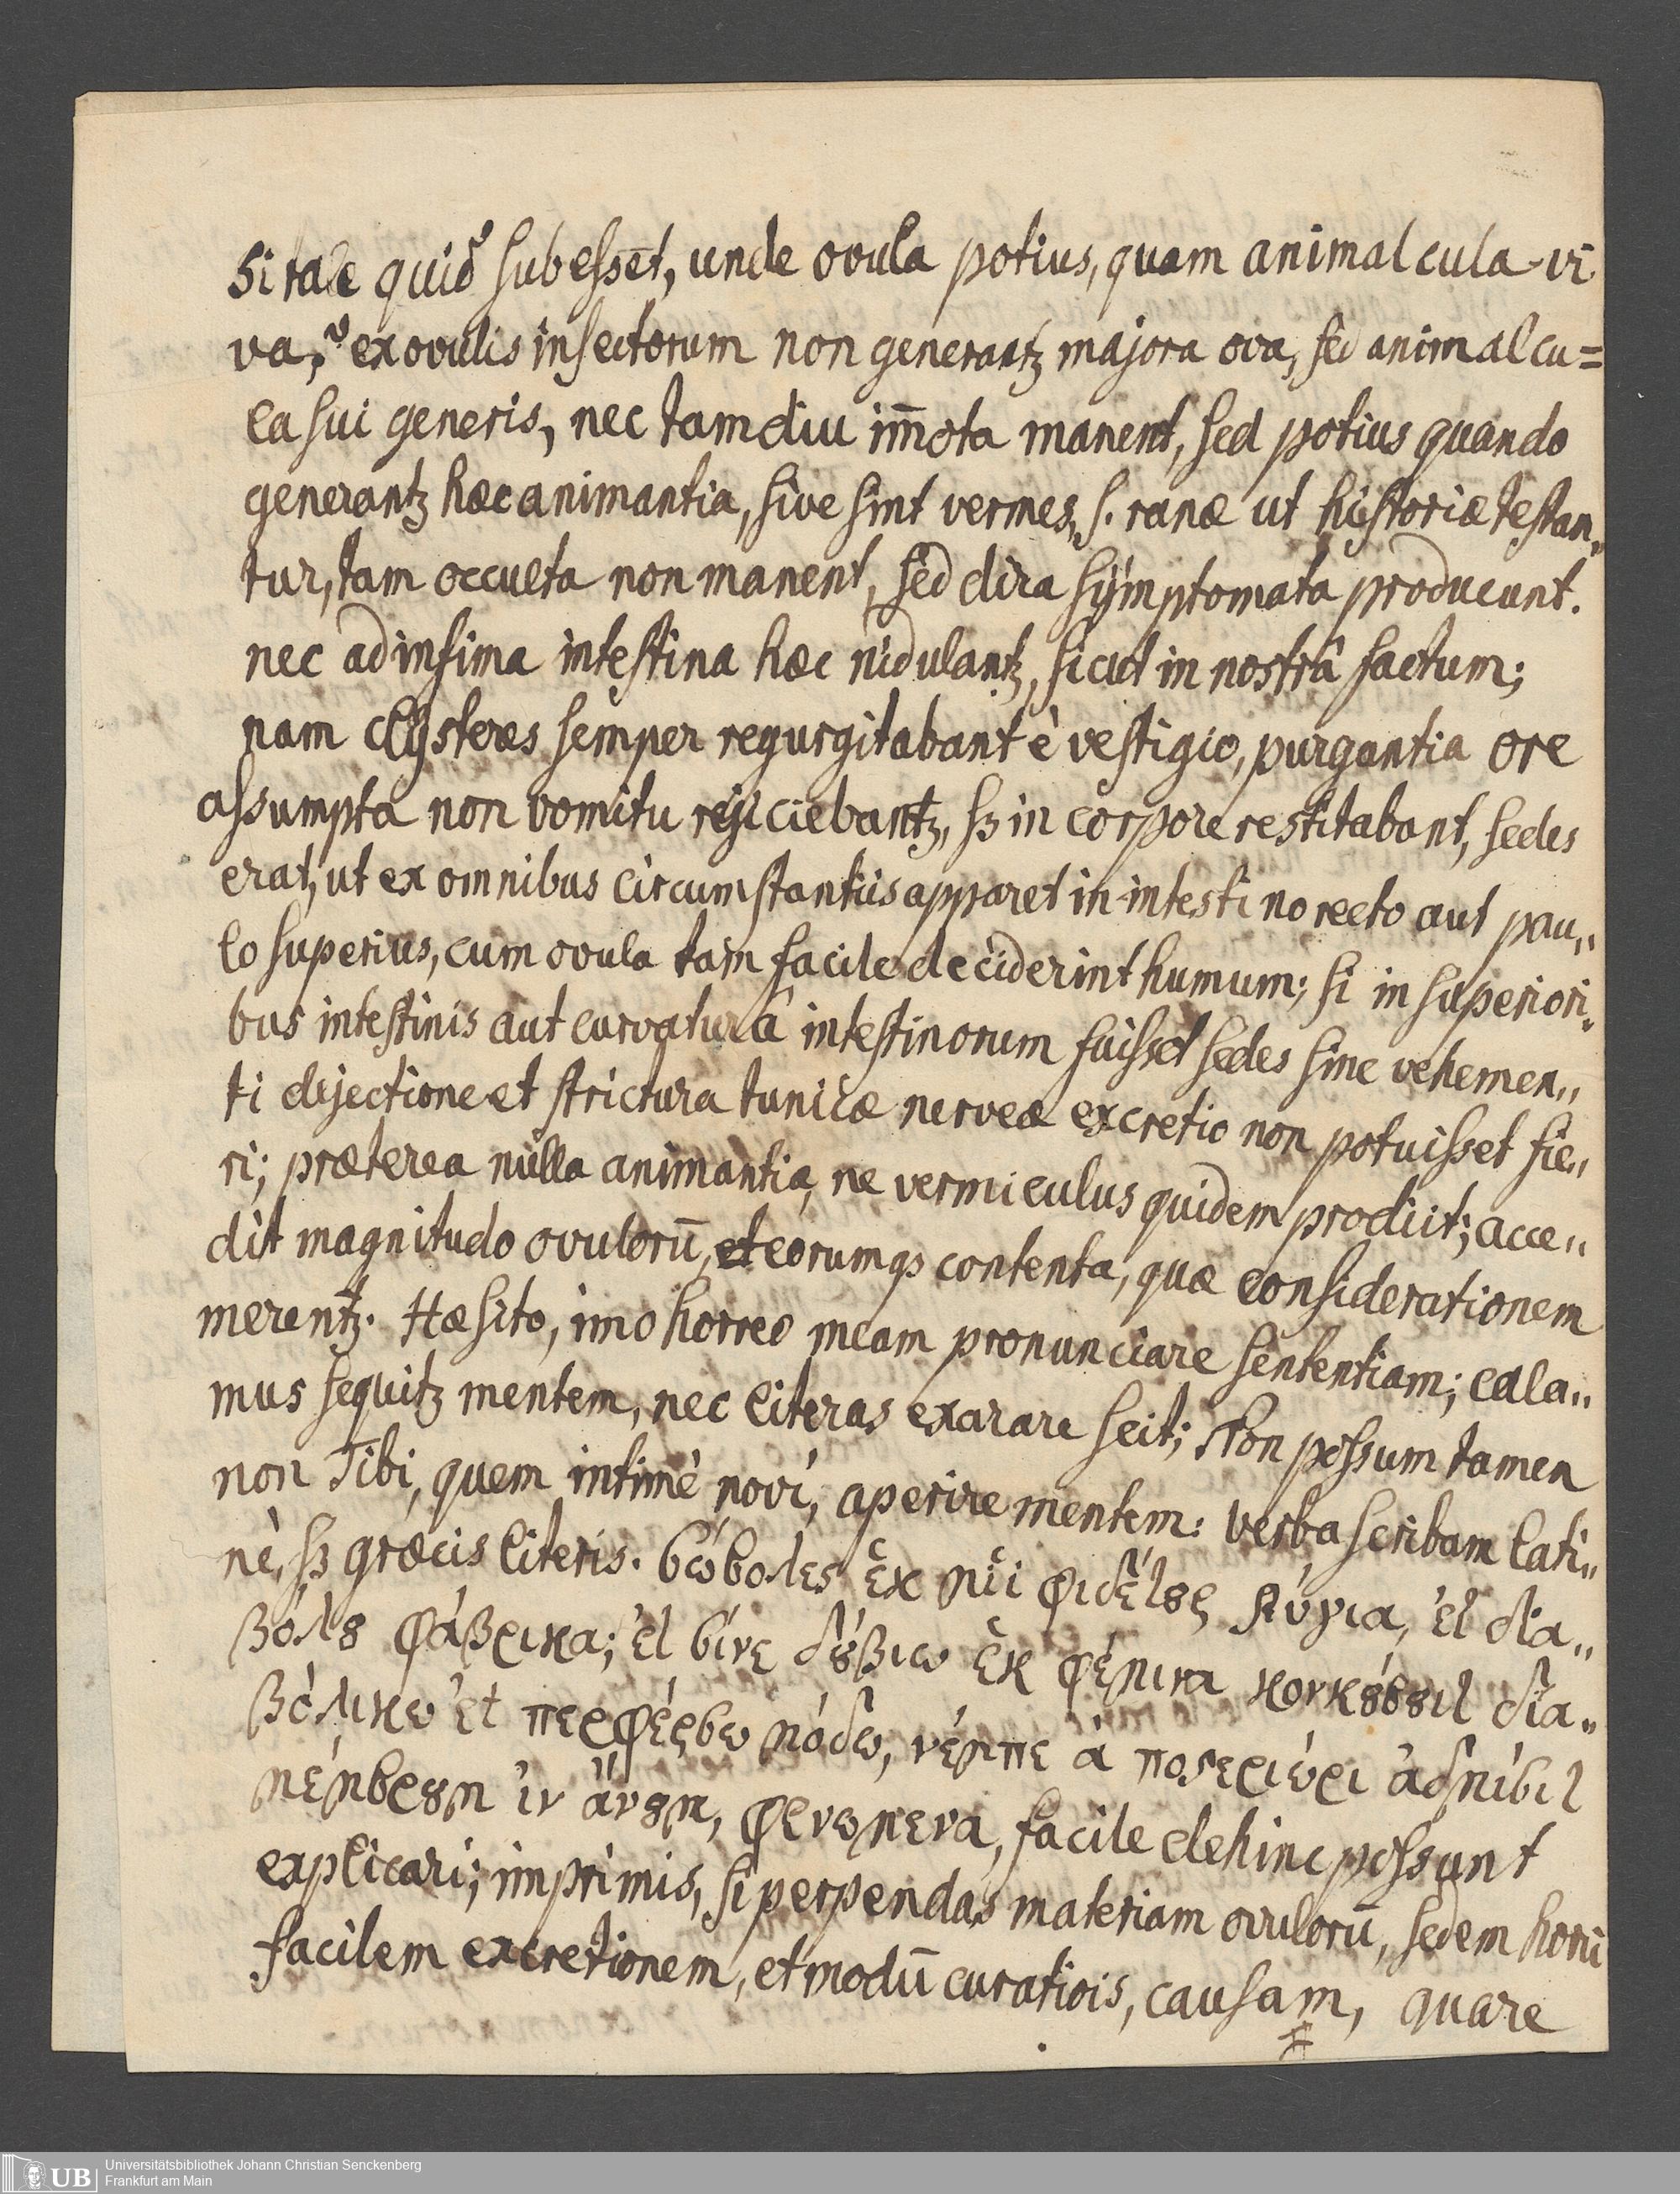 Si tale quid subesset, unde ovula potius, quam animalcula vi
va,? ex ovulis insectorum non generantꝫ majora ova, sed animalcu=
la sui generis, nec tamdiu im̄ota manent, sed potius quando
generantꝫ hæc animantia, sive sint vermes, s. ranæ ut historiæ testan„
tur, tam occulta non manent, sed dira sÿmptomata producunt.
nec ad infima intestina hæc nidulantꝫ, sicut in nostrâ factum;
nam clÿsteres semper regurgitabant è vestigio, purgantia ore
assumpta non vomitu rejiciebantꝫ, sꝫ in corpore restitabant, sedes
erat, ut ex omnibus circumstantiis apparet in intestino recto aut pau„
lo superius, cum ovula tam facile deciderint humum; si in superiori„
bus intestinis aut curvaturâ intestinorum fuisset sedes sine vehemen„
ti dejectione et strictura tunicæ nerveæ excretio non potuisset fie„
ri; præterea nulla animantia, ne vermiculus quidem prodiit; acce„
dit magnitudo ovulorū, eorumqs contenta, quæ considerationem
merentꝫ. Hæsito, imo horreo meam pronunciare sententiam; cala„
mus sequitꝫ mentem, nec literas exarare scit; Non possum tamen
non Tibi, quem intimè novi, aperire mentem: verba scribam lati„
nè, sꝫ græcis literis.
βόλȣ φάβρικα;
explicari; imprimis, si perpendas materiam ovulorū, sedem horū
facilem excretionem, et modū curatiois, causam, quare
Universitätsbibliothek Johann Christian Senckenberg
Frankfurt am Main
UB